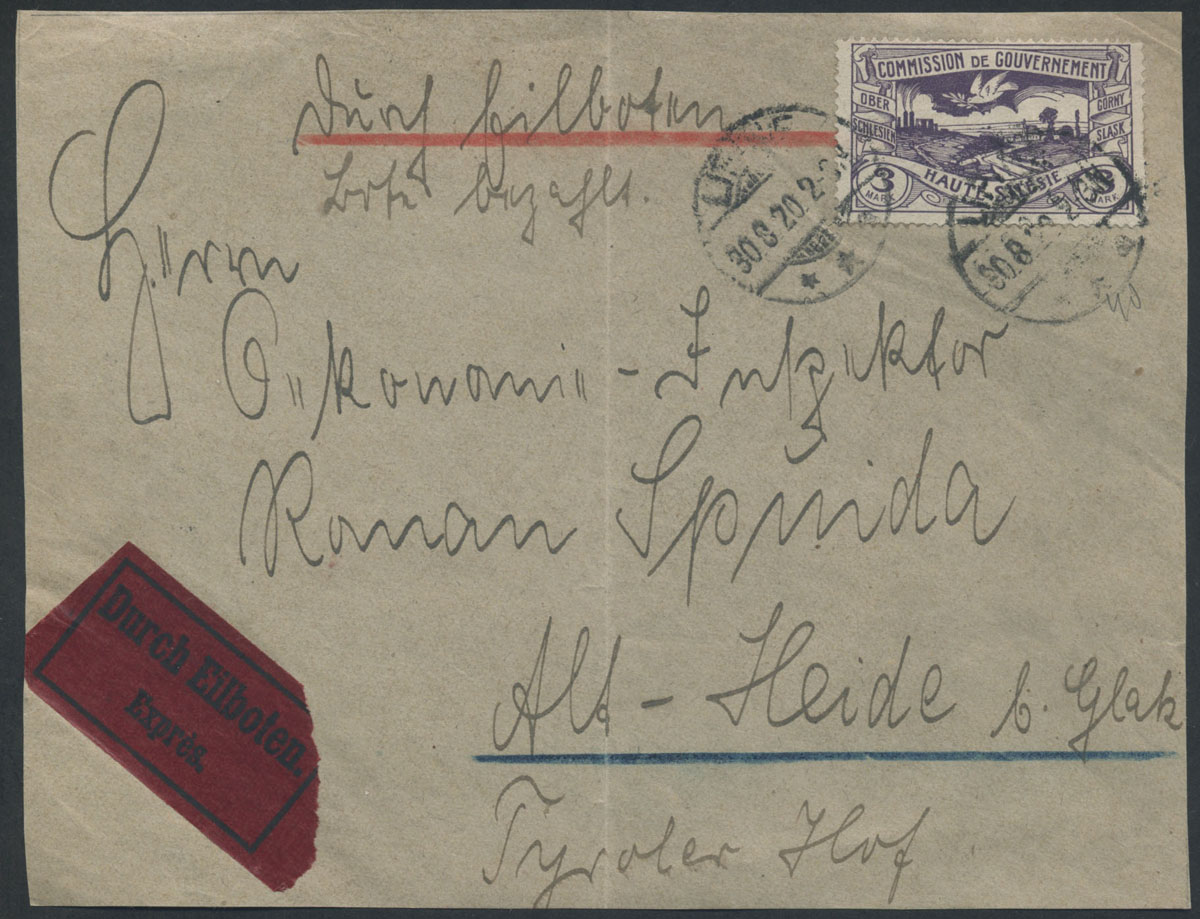 Durch Eilboten
Bote bezahlt.
COMMISSION DE GOUVERNEMENT
OBER SCHLESIEN
GORNY SLASK
HAUTE-SILESIE
3 MARK
3 MARK
30.8.20.2-3
30.8.20.2-3
Herrn
Oekonomie-Inspektor
Roman Spinda
Alt-Heide b. Glatz
Tyroler Hof
Durch Eilboten.
Exprès.